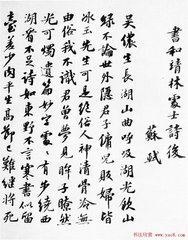 書和靖林處士詩後
蘇軾
吳儂生長湖山曲呼吸湖光飲山
綠不論世外隱君子傭兒販婦皆
冰玉先生可是絕俗人神清骨冷無
由俗我不識君曾夢見眸子瞭然
光可燭遺篇妙字處〻有步繞西
湖看不足詩如東野不言寒書似留
臺差少肉平生高節已難繼將死
书法欣赏
www.yac8.com